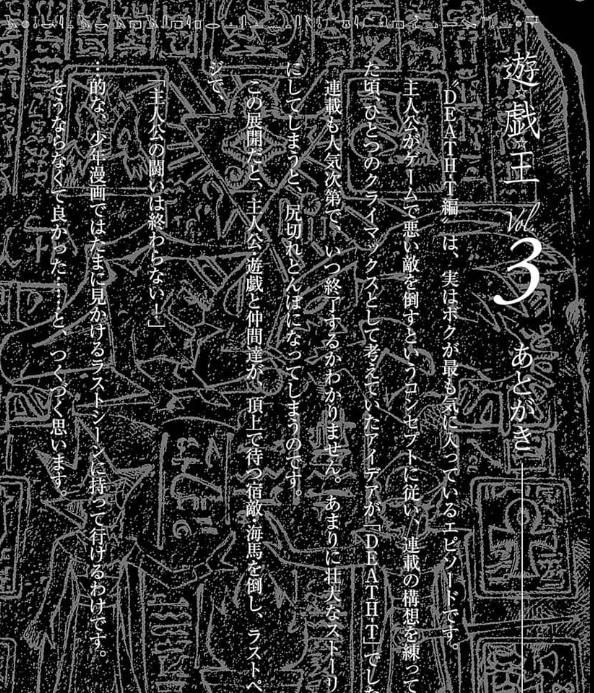 遊戯王 Vol.3 あとがき
“DEATH-T編”は、実はボクが最も気に入っているエピソードです。
主人公がゲームで悪い敵を倒すというコンセプトに従い、連載の構想を練って
た頃、ひとつのクライマックスとして考えていたアイデアが「DEATH-T」でした
連載も人気次第で、いつ終了するかわかりません。あまりに壮大なストーリ
にしてしまうと、尻切れとんぼになってしまうのです。
この展開だと、主人公・遊戯と仲間達が、頂上で待つ宿敵・海馬を倒し、ラストペ
ジで、
「主人公の闘いは終わらない！」
…的な、少年漫画ではたまに見かけるラストシーンに持って行けるわけです。
そうならなくて良かった……と、つくづく思います。